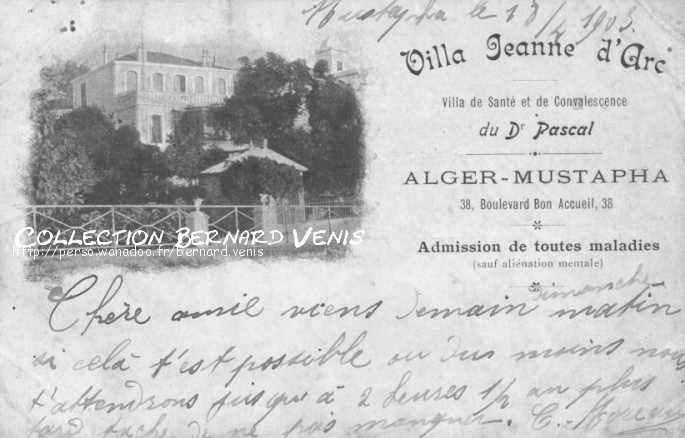 Mustapha le 18/ 1903.
Villa Jeanne d'Arc
Villa de Santé et de Convalescence
du Dr Pascal
ALGER-MUSTAPHA
38, Boulevard Bon Accueil, 38
Admission de toutes maladies
(sauf aliénation mentale)
COLLECTION BERNARD VENIS
http://perso.wanadoo.fr/bernard.venis
Dimanche
Chère amie viens demain matin
si celà t'est possible ou du moins nous
t'attendrons jusqu'à 2 heures 1/2 au plus
tard tache de ne pas manquer. C. Moreau